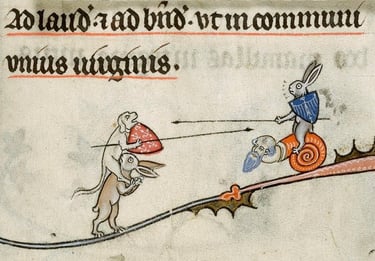 Ad laud' ⁊ ad bn̄d'. vt in communi
vnius uirginis.